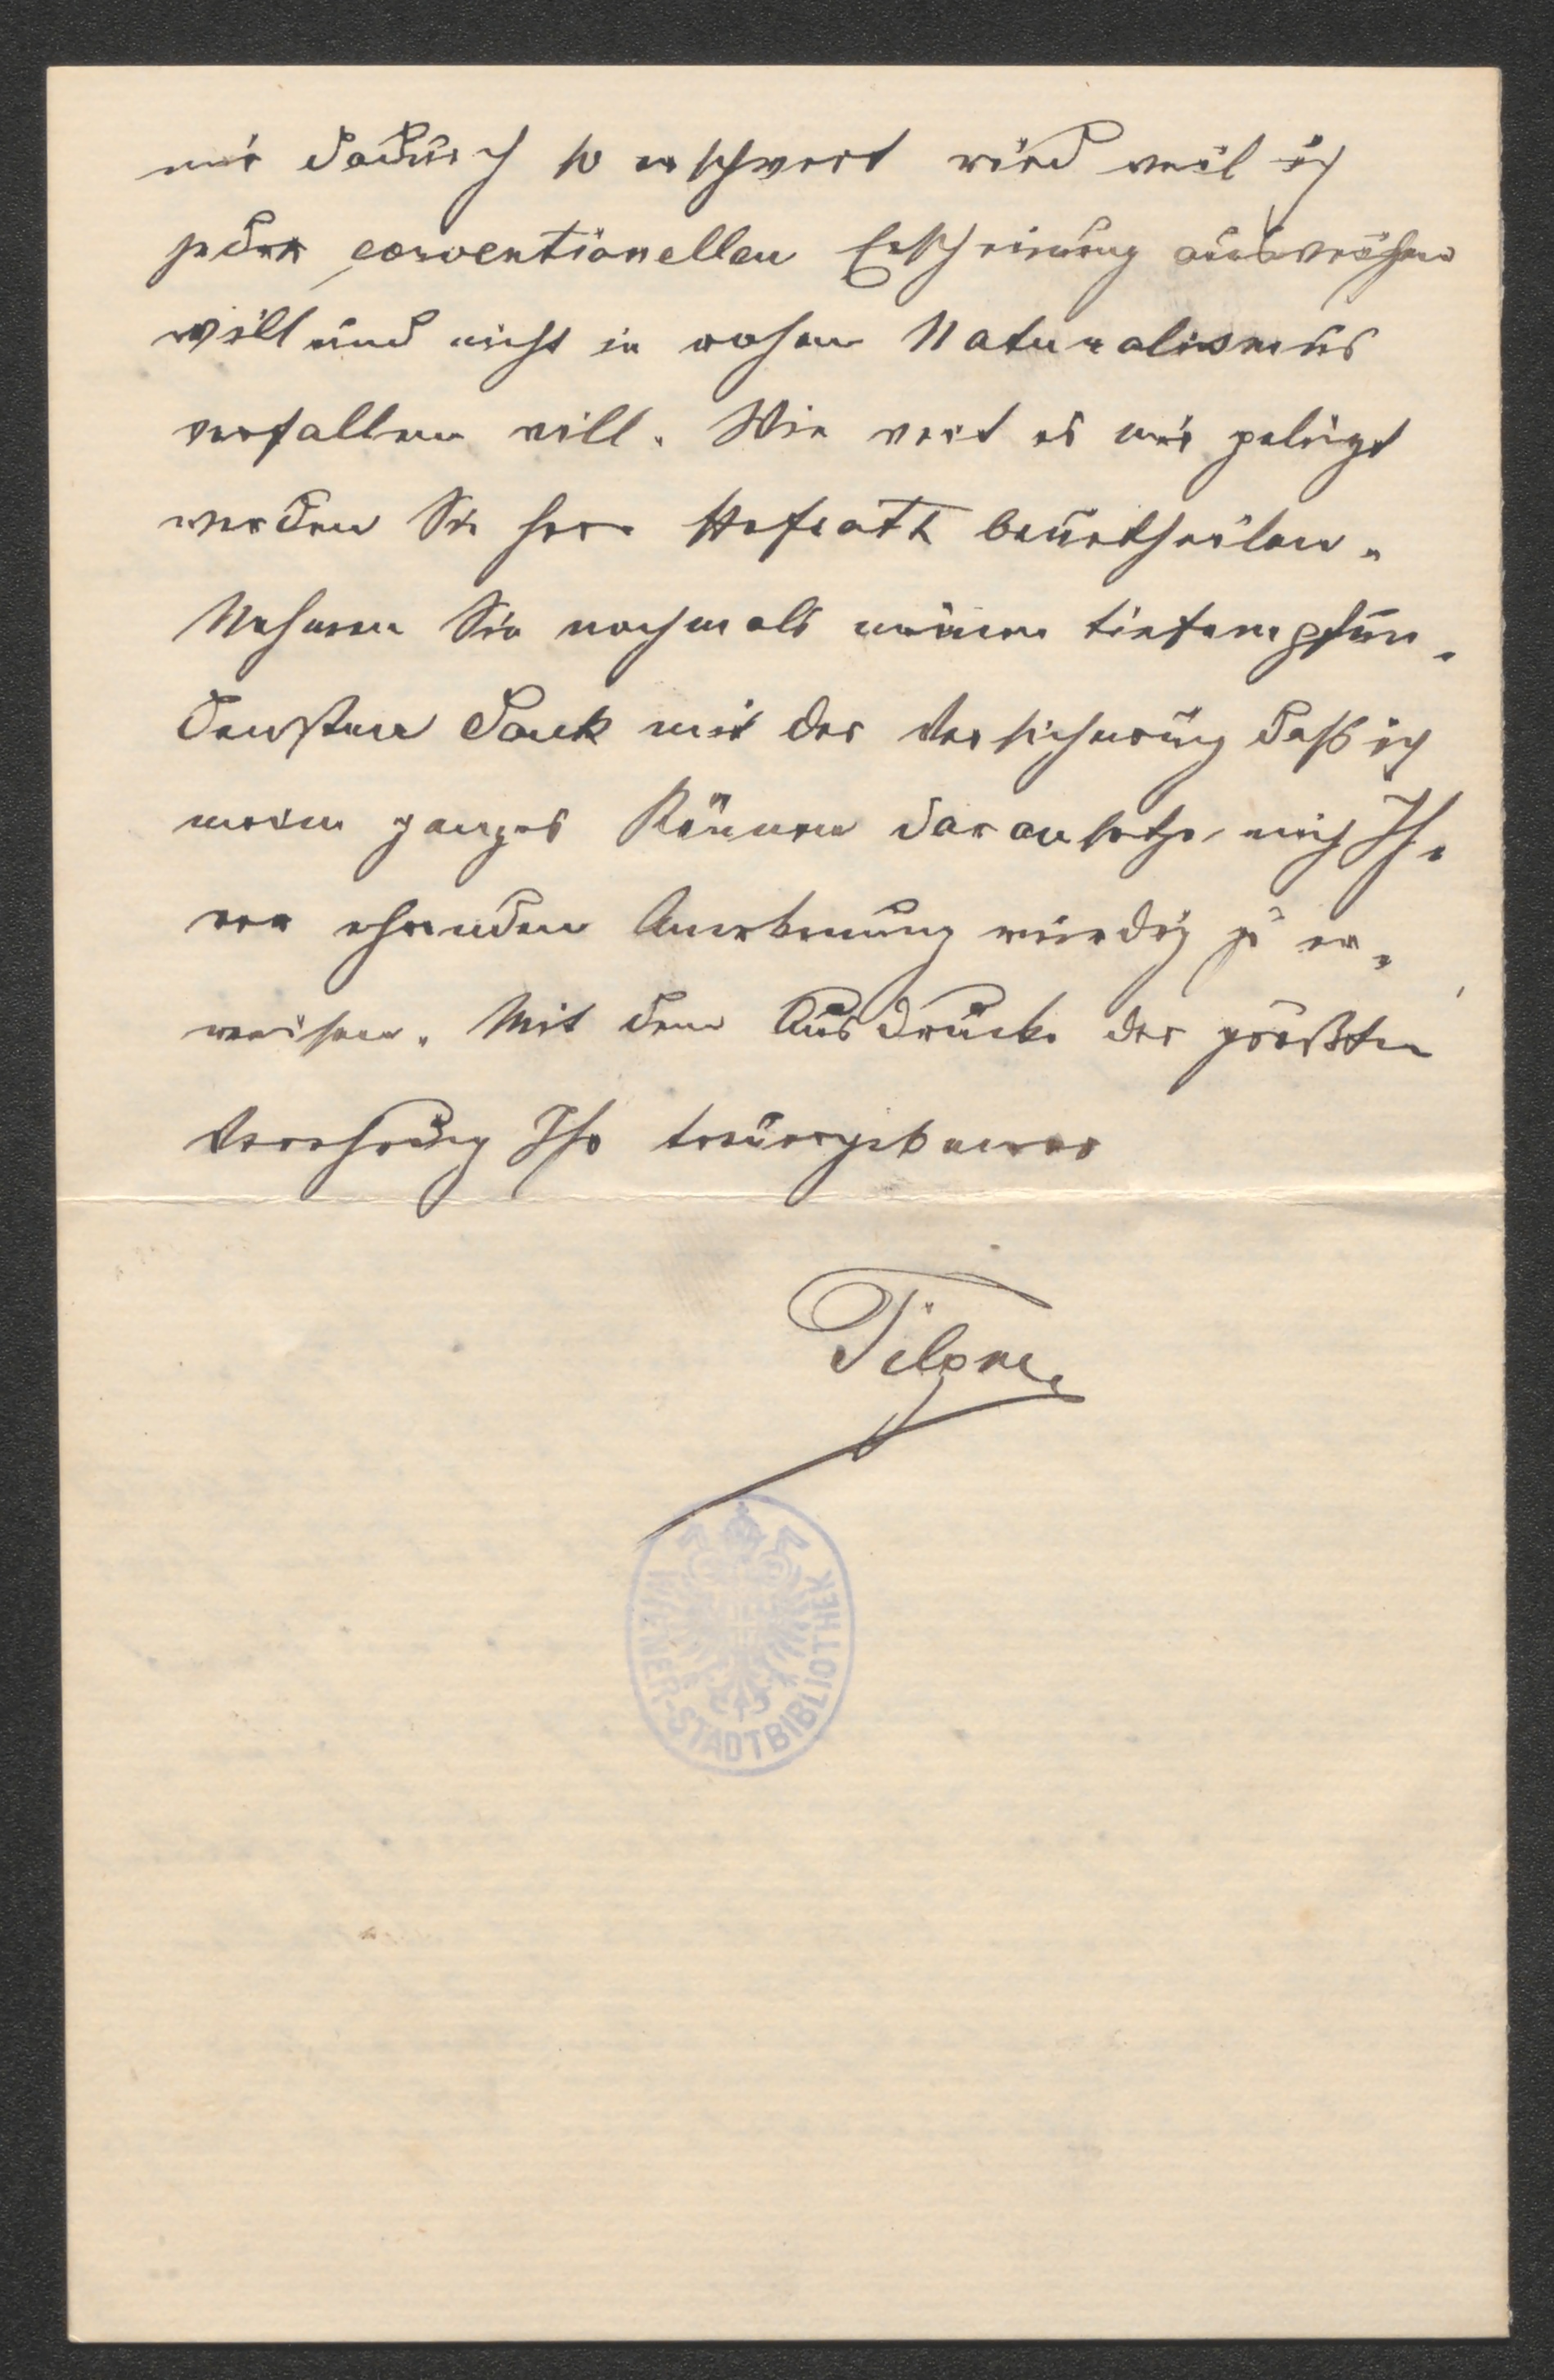 mir dadurch so erschwert wird weil ich
jeder conventionellen Erscheinung ausweichen
will und nicht in rohen Naturalismus
verfallen will. Wie weit es mir gelingt
werden Sie Herr Hofrath beurtheilen.
Nehmen Sie nochmals meinen tiefempfun-
densten Dank mit der Versicherung daß ich
mein ganzes Können daran setze, mich Ih-
rer ehrenden Anerkennung würdig zu er-
weisen. Mit dem Ausdrucke der größten
Verehrung Ihr treuergebener
Tilgner
WIENER-STADTBIBLIOTHEK